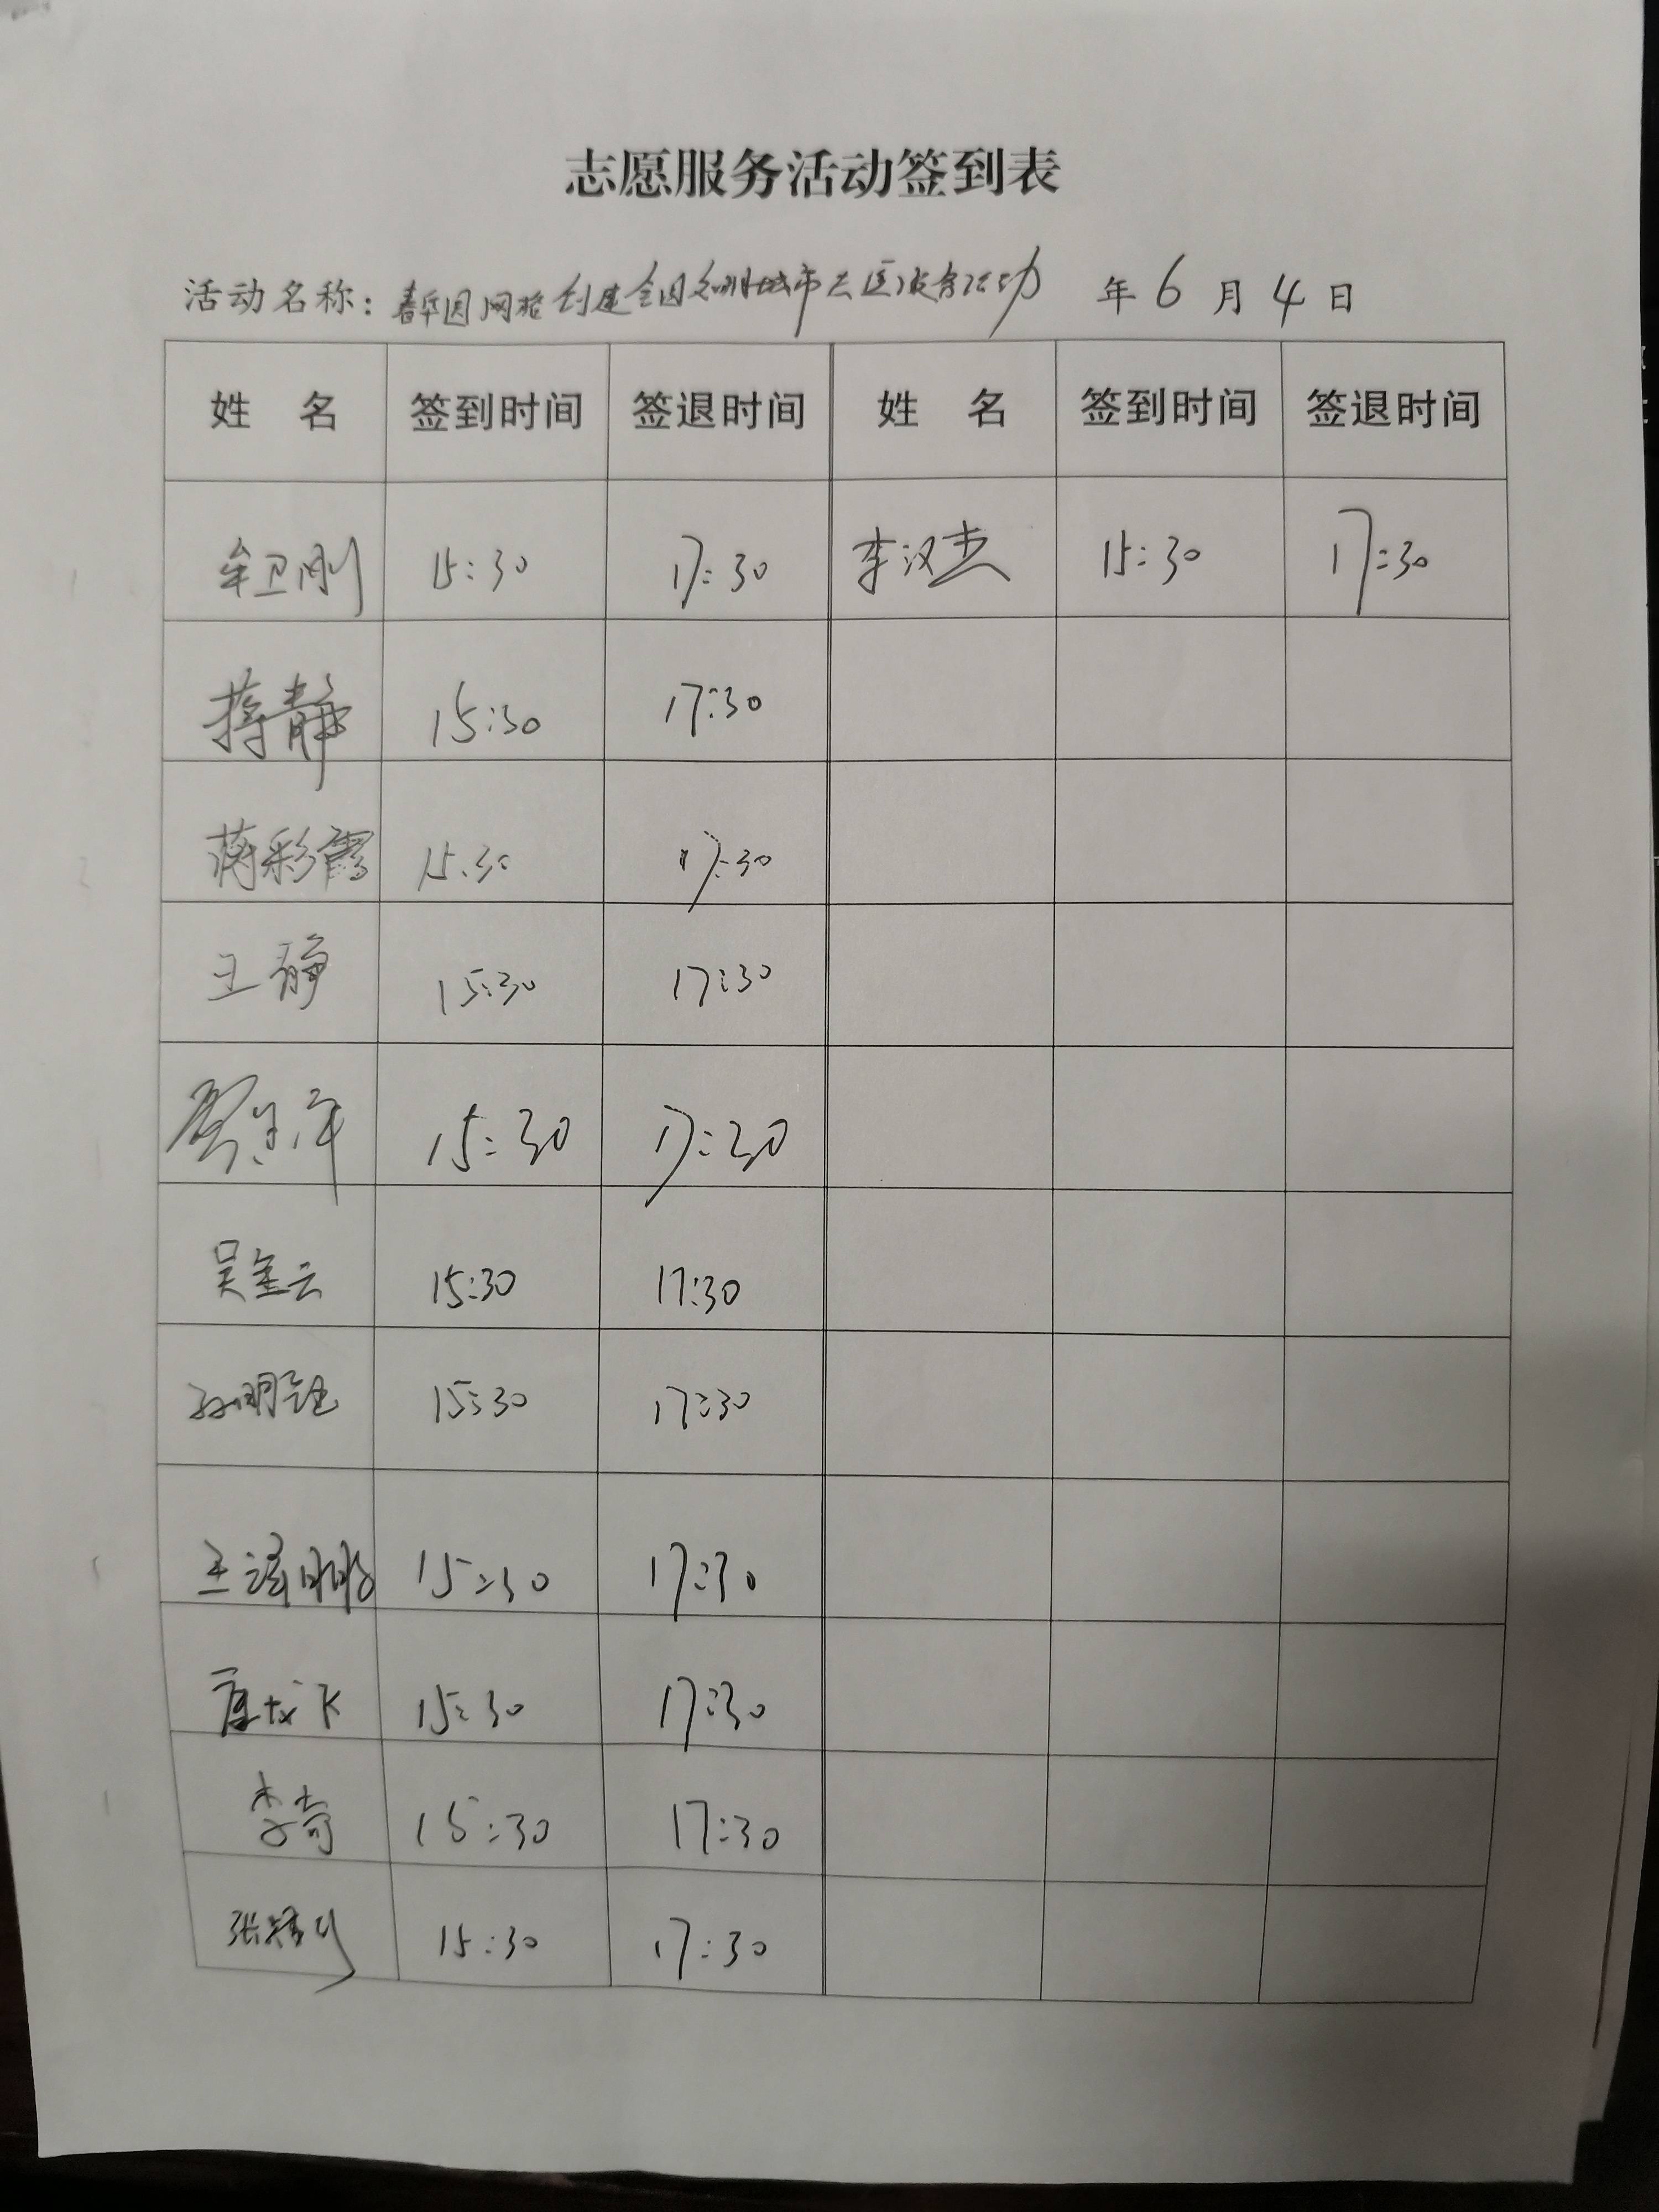 志愿服务活动签到表
活动名称：馨园网格创建全国文明城市志愿服务活动 年6月4日
姓 名 签到时间 签退时间 姓 名 签到时间 签退时间
牟卫刚 15:30 17:30 李汉杰 15:30 17:30
蒋静 15:30 17:30
蒋彩霞 15:30 17:30
王静 15:30 17:30
15:30 17:30
吴金云 15:30 17:30
孙明钰 15:30 17:30
王泽鹏 15:30 17:30
唐龙飞 15:30 17:30
李奇 15:30 17:30
15:30 17:30